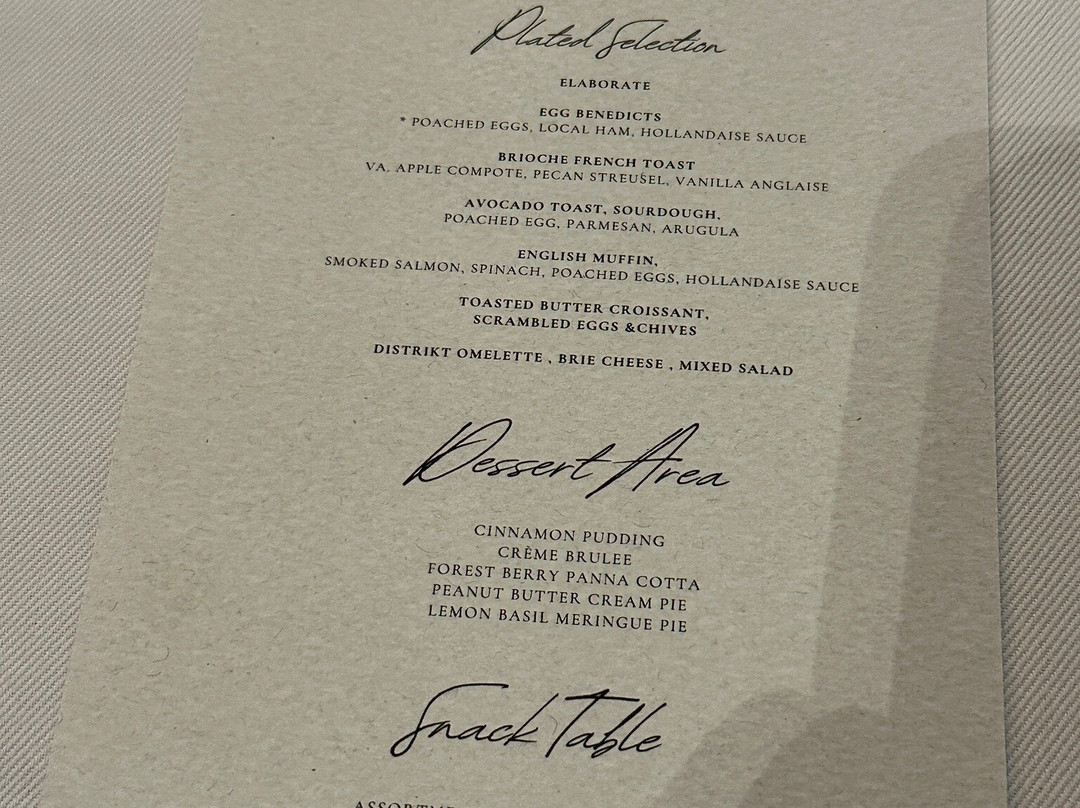 Plated Selection
ELABORATE
EGG BENEDICTS
* POACHED EGGS, LOCAL HAM, HOLLANDAISE SAUCE
BRIOCHE FRENCH TOAST
VA, APPLE COMPOTE, PECAN STREUSEL, VANILLA ANGLAISE
AVOCADO TOAST, SOURDOUGH,
POACHED EGG, PARMESAN, ARUGULA
ENGLISH MUFFIN,
SMOKED SALMON, SPINACH, POACHED EGGS, HOLLANDAISE SAUCE
TOASTED BUTTER CROISSANT,
SCRAMBLED EGGS &CHIVES
DISTRIKT OMELETTE , BRIE CHEESE , MIXED SALAD
Dessert Area
CINNAMON PUDDING
CRÈME BRULEE
FOREST BERRY PANNA COTTA
PEANUT BUTTER CREAM PIE
LEMON BASIL MERINGUE PIE
Snack Table